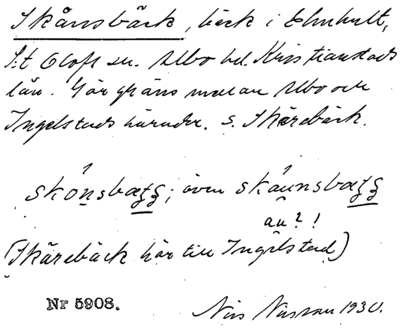 Skånsbäck, bäck i Elmhult,
S:t Olofs sn. Albo hd. Kristianstads
län. Gör gräns mellan Albo och
Ingelstads härader. s. Skärebäck.
skó̄nsbæʒʒ; även skáunsbæʒʒ
au?!
(Skärebäck hör till Ingelstad)
Nr 5908.
Nils Nilsson 1930.